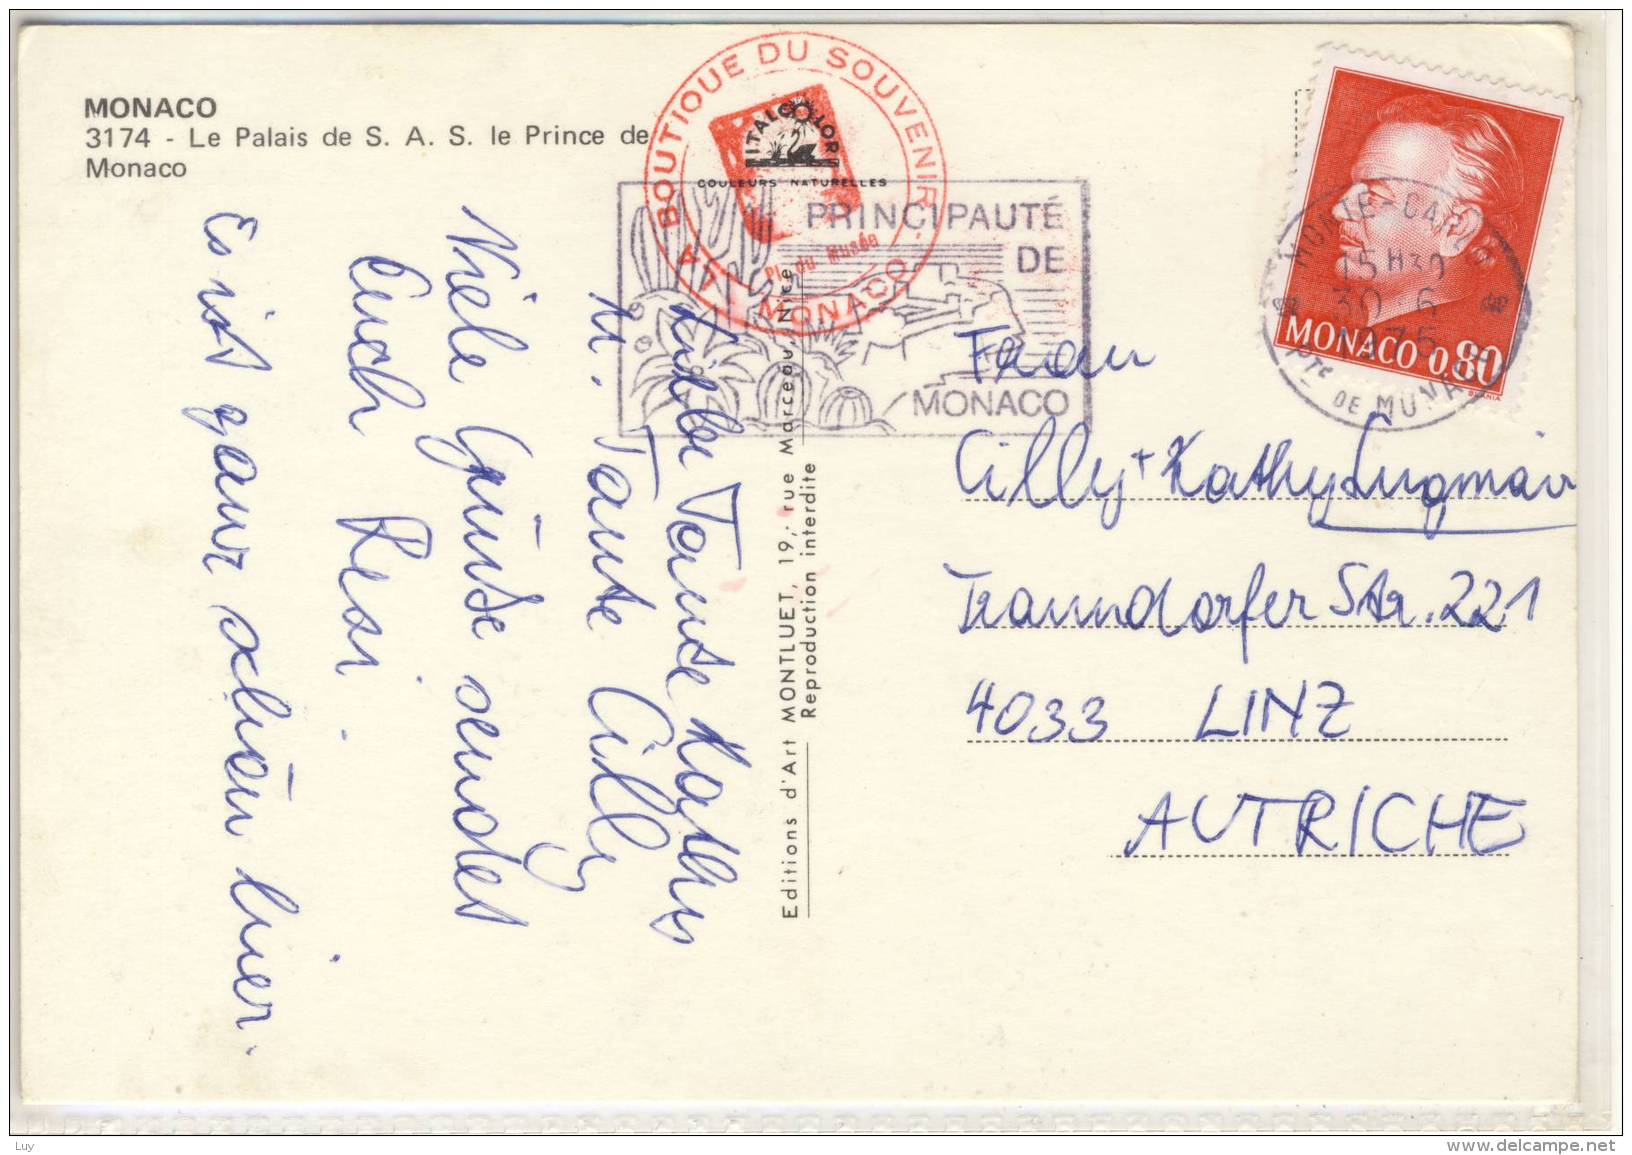 MONACO
3174 - Le Palais de S. A. S. le Prince de
Monaco
LA BOUTIQUE DU SOUVENIR.
MONACO
Pl. du Musée
ITALCOLOR
COULEURS NATURELLES
PRINCIPAUTÉ
DE
MONACO
MONTE-CARLO
15H30
30-6
1975
Pte DE MONACO
MONACO 0,80
Liebe Tante Kathy
u. Tante Cilly
Viele Grüße sendet
Euch Resi.
Es ist ganz schön hier.
Editions d'Art MONTLUET, 19, rue Marceau, Nice
Reproduction interdite
Frau
Cilly + Kathy Lugmair
Traundorfer Str. 221
4033 LINZ
AUTRICHE
Luy
www.delcampe.net